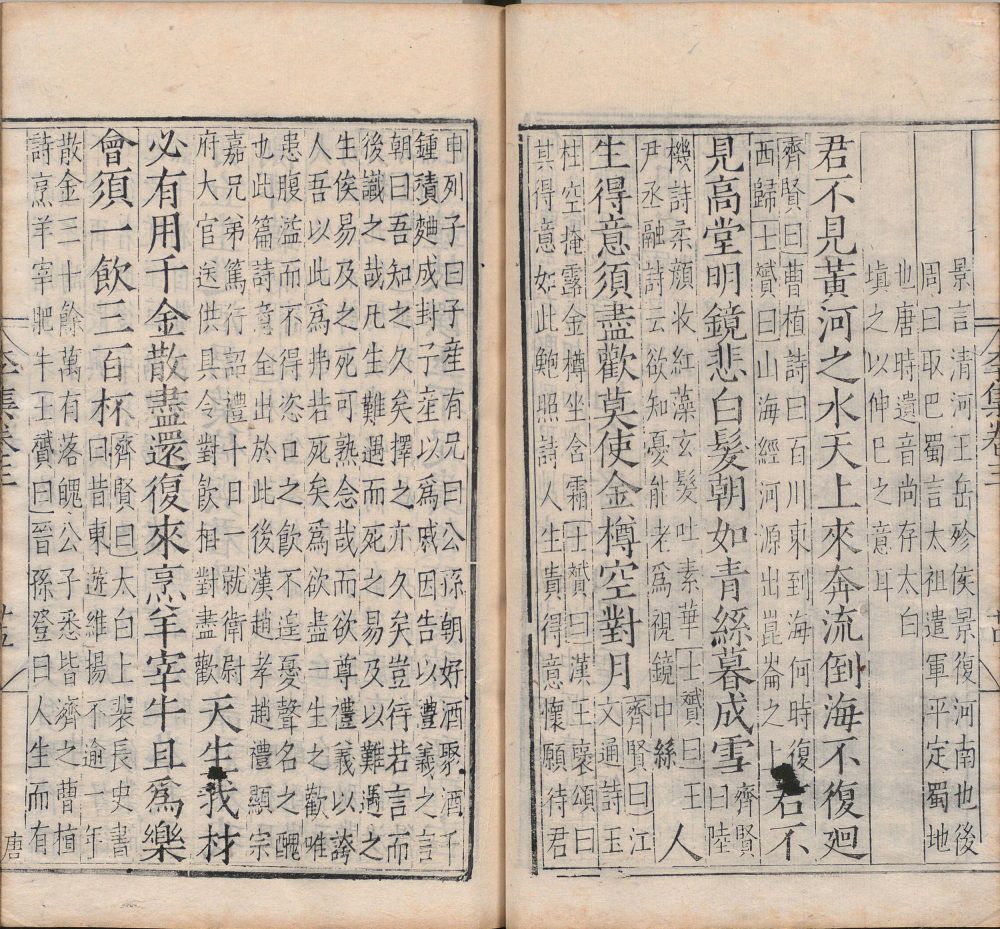 李集卷三
景言清河王岳殄侯景復河南地也後
周曰取巴蜀言太祖遣軍平定蜀地
也唐時遺音尚存太白
填之以伸已之意耳
君不見黃河之水天上來奔流倒海不復廻
齊賢曰曹植詩曰百川東到海何時復
西歸士贇曰山海經河源出崑崙之上
君不
見高堂明鏡悲白髮朝如青絲暮成雪
齊賢
曰陸
機詩柔顏收紅藻玄髮吐素華士贇曰王
尹丞融詩云欲知憂能老爲視鏡中絲
人
生得意須盡歡莫使金樽空對月
齊賢曰江
文通詩玉
柱空掩露金樽坐含霜士贇曰漢王褒頌曰
其得意如此鮑照詩人生貴得意懷願待君
申列子曰子産有兄曰公孫朝好酒聚酒千
鍾積麯成封子産以爲戚因告以禮義之言
朝曰吾知之久矣擇之亦久矣豈待若言而
後識之哉凡生難遇而死之易及以難遇之
生俟易及之死可熟念哉而欲尊禮義以誇
人吾以此爲弗若死矣爲欲盡一生之歡唯
患腹溢而不得恣口之飲不遑憂聲名之醜
也此篇詩意全出於此後漢趙孝趙禮顯宗
嘉兄弟篤行詔禮十日一就衛尉
府大官送供具令對飲相對盡歡
天生我材
必有用千金散盡還復來烹羊宰牛且爲樂
會須一飲三百杯
齊賢曰太白上裴長史書
曰昔東遊維揚不逾一年
散金三十餘萬有落魄公子悉皆濟之曹植
詩烹羊宰肥牛士贇曰晉孫登曰人生而有
李集卷三
十五
唐